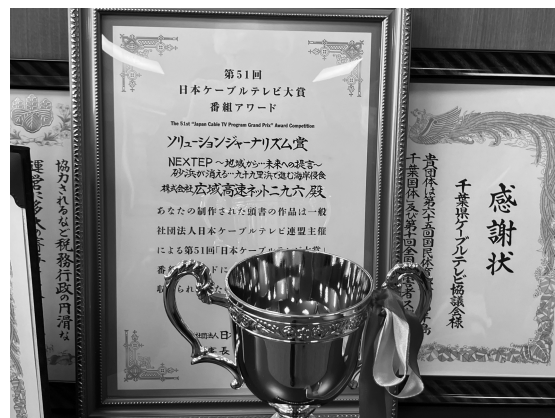 第51回
日本ケーブルテレビ大賞
番組アワード
The 51st "Japan Cable TV Program Grand Prix" Award Competition
ソリューションジャーナリズム賞
NEXTEP ～地域から…未来への提言～
砂浜が消える…九十九里浜で進む海岸侵食
株式会社 広域高速ネット二九六 殿
あなたの制作された頭書の作品は一般
社団法人日本ケーブルテレビ連盟主催
による第51回「日本ケーブルテレビ大賞
番
感謝状
千葉県ケーブルテレビ協議会様
貴団体は第六十五回国民体育
千葉国体 及び第十回全国
協力されるなど税務行政の円滑な